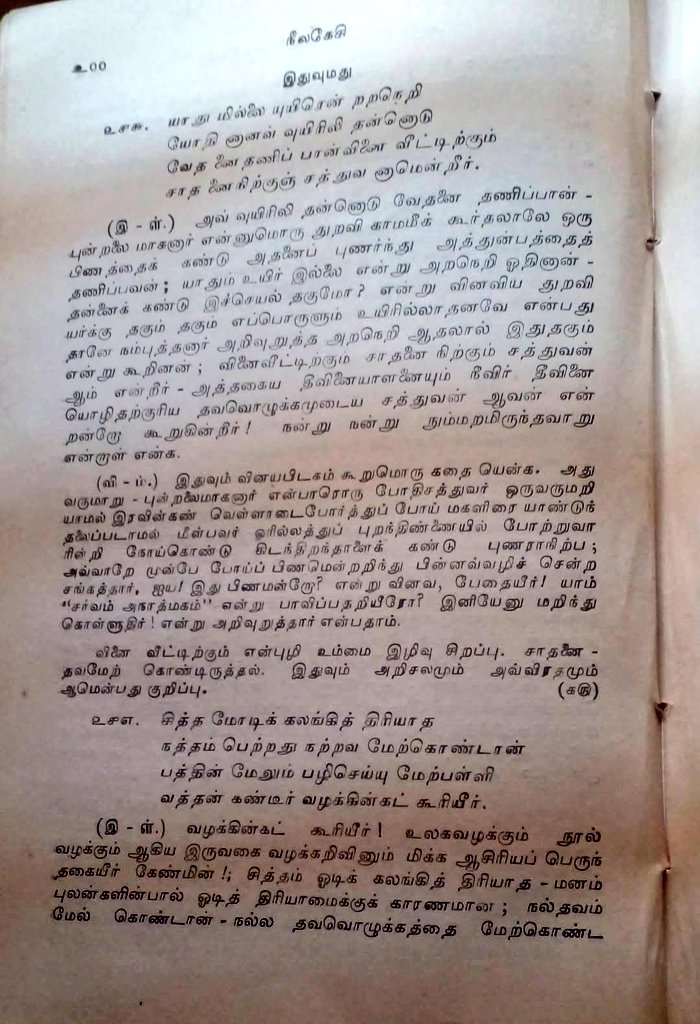 நீலகேசி
௨00
இதுவுமது
௨௪௬. யாது மில்லை யுயிரென் றறநெறி
யோதி னானவ் வுயிரிலி தன்னொடு
வேத னைதணிப் பான்வினை வீட்டிற்கும்
சாத னைநிற்குஞ் சத்துவ னாமென்றீர்.
(இ - ள்.) அவ் வுயிரிலி தன்னொடு வேதனை தணிப்பான் -
புன்றலை மாகனார் என்னுமொரு துறவி காமமீக் கூர்தலாலே ஒரு
பிணத்தைக் கண்டு அதனைப் புணர்ந்து அத்துன்பத்தைத்
தணிப்பவன் ; யாதும் உயிர் இல்லை என்று அறநெறி ஓதினான் -
தன்னைக் கண்டு இச்செயல் தகுமோ? என்று வினவிய துறவி
யர்க்கு தகும் தகும் எப்பொருளும் உயிரில்லாதனவே என்பது
தானே நம்புத்தனார் அறிவுறுத்த அறநெறி ஆதலால் இதுதகும்
என்று கூறினன் ; வினைவீட்டிற்கும் சாதனை நிற்கும் சத்துவன்
ஆம் என்றீர் - அத்தகைய தீவினையாளனையும் நீவிர் தீவினை
யொழிதற்குரிய தவவொழுக்கமுடைய சத்துவன் ஆவன் என்
றன்றோ கூறுகின்றீர்! நன்று நன்று நும்மறமிருந்தவாறு
என்றாள் என்க.
(வி - ம்.) இதுவும் வினயபிடகம் கூறுமொரு கதை யென்க. அது
வருமாறு - புன்றலைமாகனார் என்பாரொரு போதிசத்துவர் ஒருவருமறி
யாமல் இரவின்கண் வெள்ளாடைபோர்த்துப் போய் மகளிரை யாண்டுந்
தலைப்படாமல் மீள்பவர் ஓரில்லத்துப் புறந்திண்ணையில் போற்றுவா
ரின்றி நோய்கொண்டு கிடந்திறந்தாளைக் கண்டு புணராநிற்ப ;
அவ்வாறே முன்பே போய்ப் பிணமென்றறிந்து பின்னவ்வழிச் சென்ற
சங்கத்தார், ஐய! இது பிணமன்றோ? என்று வினவ, பேதையீர்! யாம்
“சர்வம் அநாத்மகம்” என்று பாவிப்பதறியீரோ? இனியேனு மறிந்து
கொள்ளுதிர்! என்று அறிவுறுத்தார் என்பதாம்.
வினை வீட்டிற்கும் என்புழி உம்மை இழிவு சிறப்பு. சாதனை -
தவமேற் கொண்டிருத்தல். இதுவும் அறிசலமும் அவ்விரதமும்
ஆமென்பது குறிப்பு. (௧௫)
௨௪௭. சித்த மோடிக் கலங்கித் திரியாத
நத்தம் பெற்றது நற்றவ மேற்கொண்டான்
பத்தின் மேலும் பழிசெய்யு மேற்பள்ளி
வத்தன் கண்டீர் வழக்கின்கட் கூரியீர்.
(இ - ள்.) வழக்கின்கட் கூரியீர்! உலகவழக்கும் நூல்
வழக்கும் ஆகிய இருவகை வழக்கறிவினும் மிக்க ஆசிரியப் பெருந்
தகையீர் கேண்மின்!; சித்தம் ஓடிக் கலங்கித் திரியாத - மனம்
புலன்களின்பால் ஓடித் திரியாமைக்குக் காரணமான ; நல்தவம்
மேல் கொண்டான் - நல்ல தவவொழுக்கத்தை மேற்கொண்ட